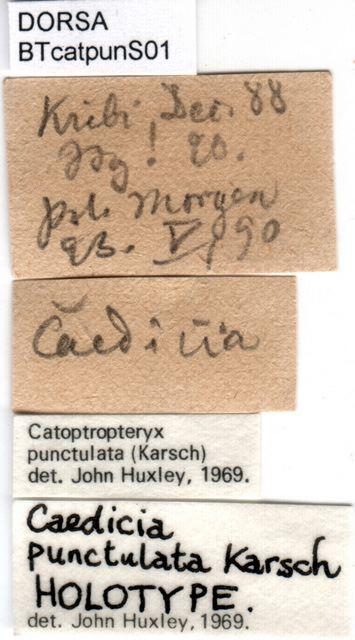 DORSA
BTcatpunS01
Kribi, Dec. 88
! 20.
Morgen
V, 90
Caedicia
Catoptropteryx
punctulata (Karsch)
det. John Huxley, 1969.
Caedicia
punctulata Karsch
HOLOTYPE.
det. John Huxley, 1969.